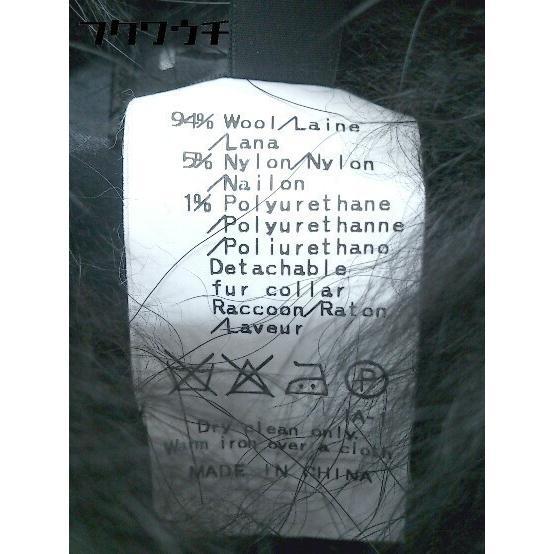 フクワウチ
94% Wool/Laine
/Lana
5% Nylon/Nylon
/Nailon
1% Polyurethane
/Polyurethanne
/Poliurethano
Detachable
fur collar
Raccoon/Raton
/Laveur
P
IA-1
Dry clean only.
Warm iron over a cloth
MADE IN CHINA